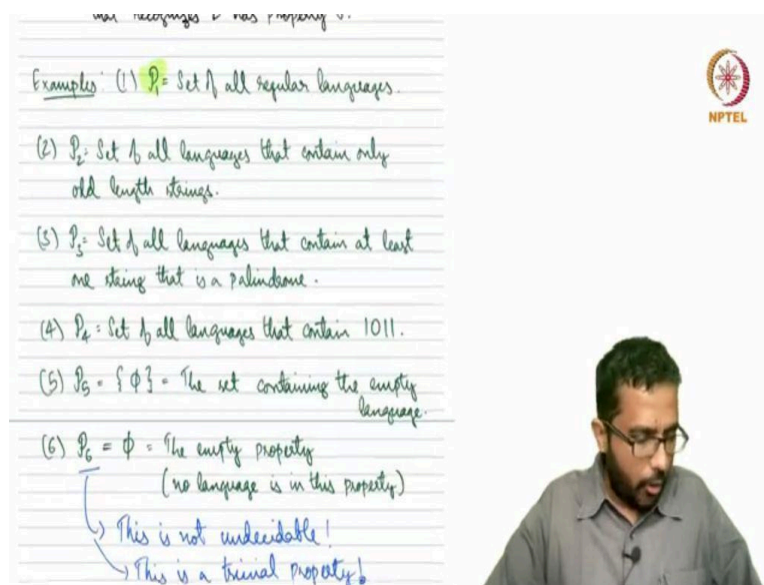 that recognizes L has property P.
Examples: (1) P₁ = Set of all regular languages.
NPTEL
(2) P₂ = Set of all languages that contain only
odd length strings.
(3) P₃ = Set of all languages that contain at least
one string that is a palindrome.
(4) P₄ = Set of all languages that contain 1011.
(5) P₅ = {ϕ} = The set containing the empty
language.
(6) P₆ = ϕ = The empty property
(no language is in this property)
This is not undecidable!
This is a trivial property!